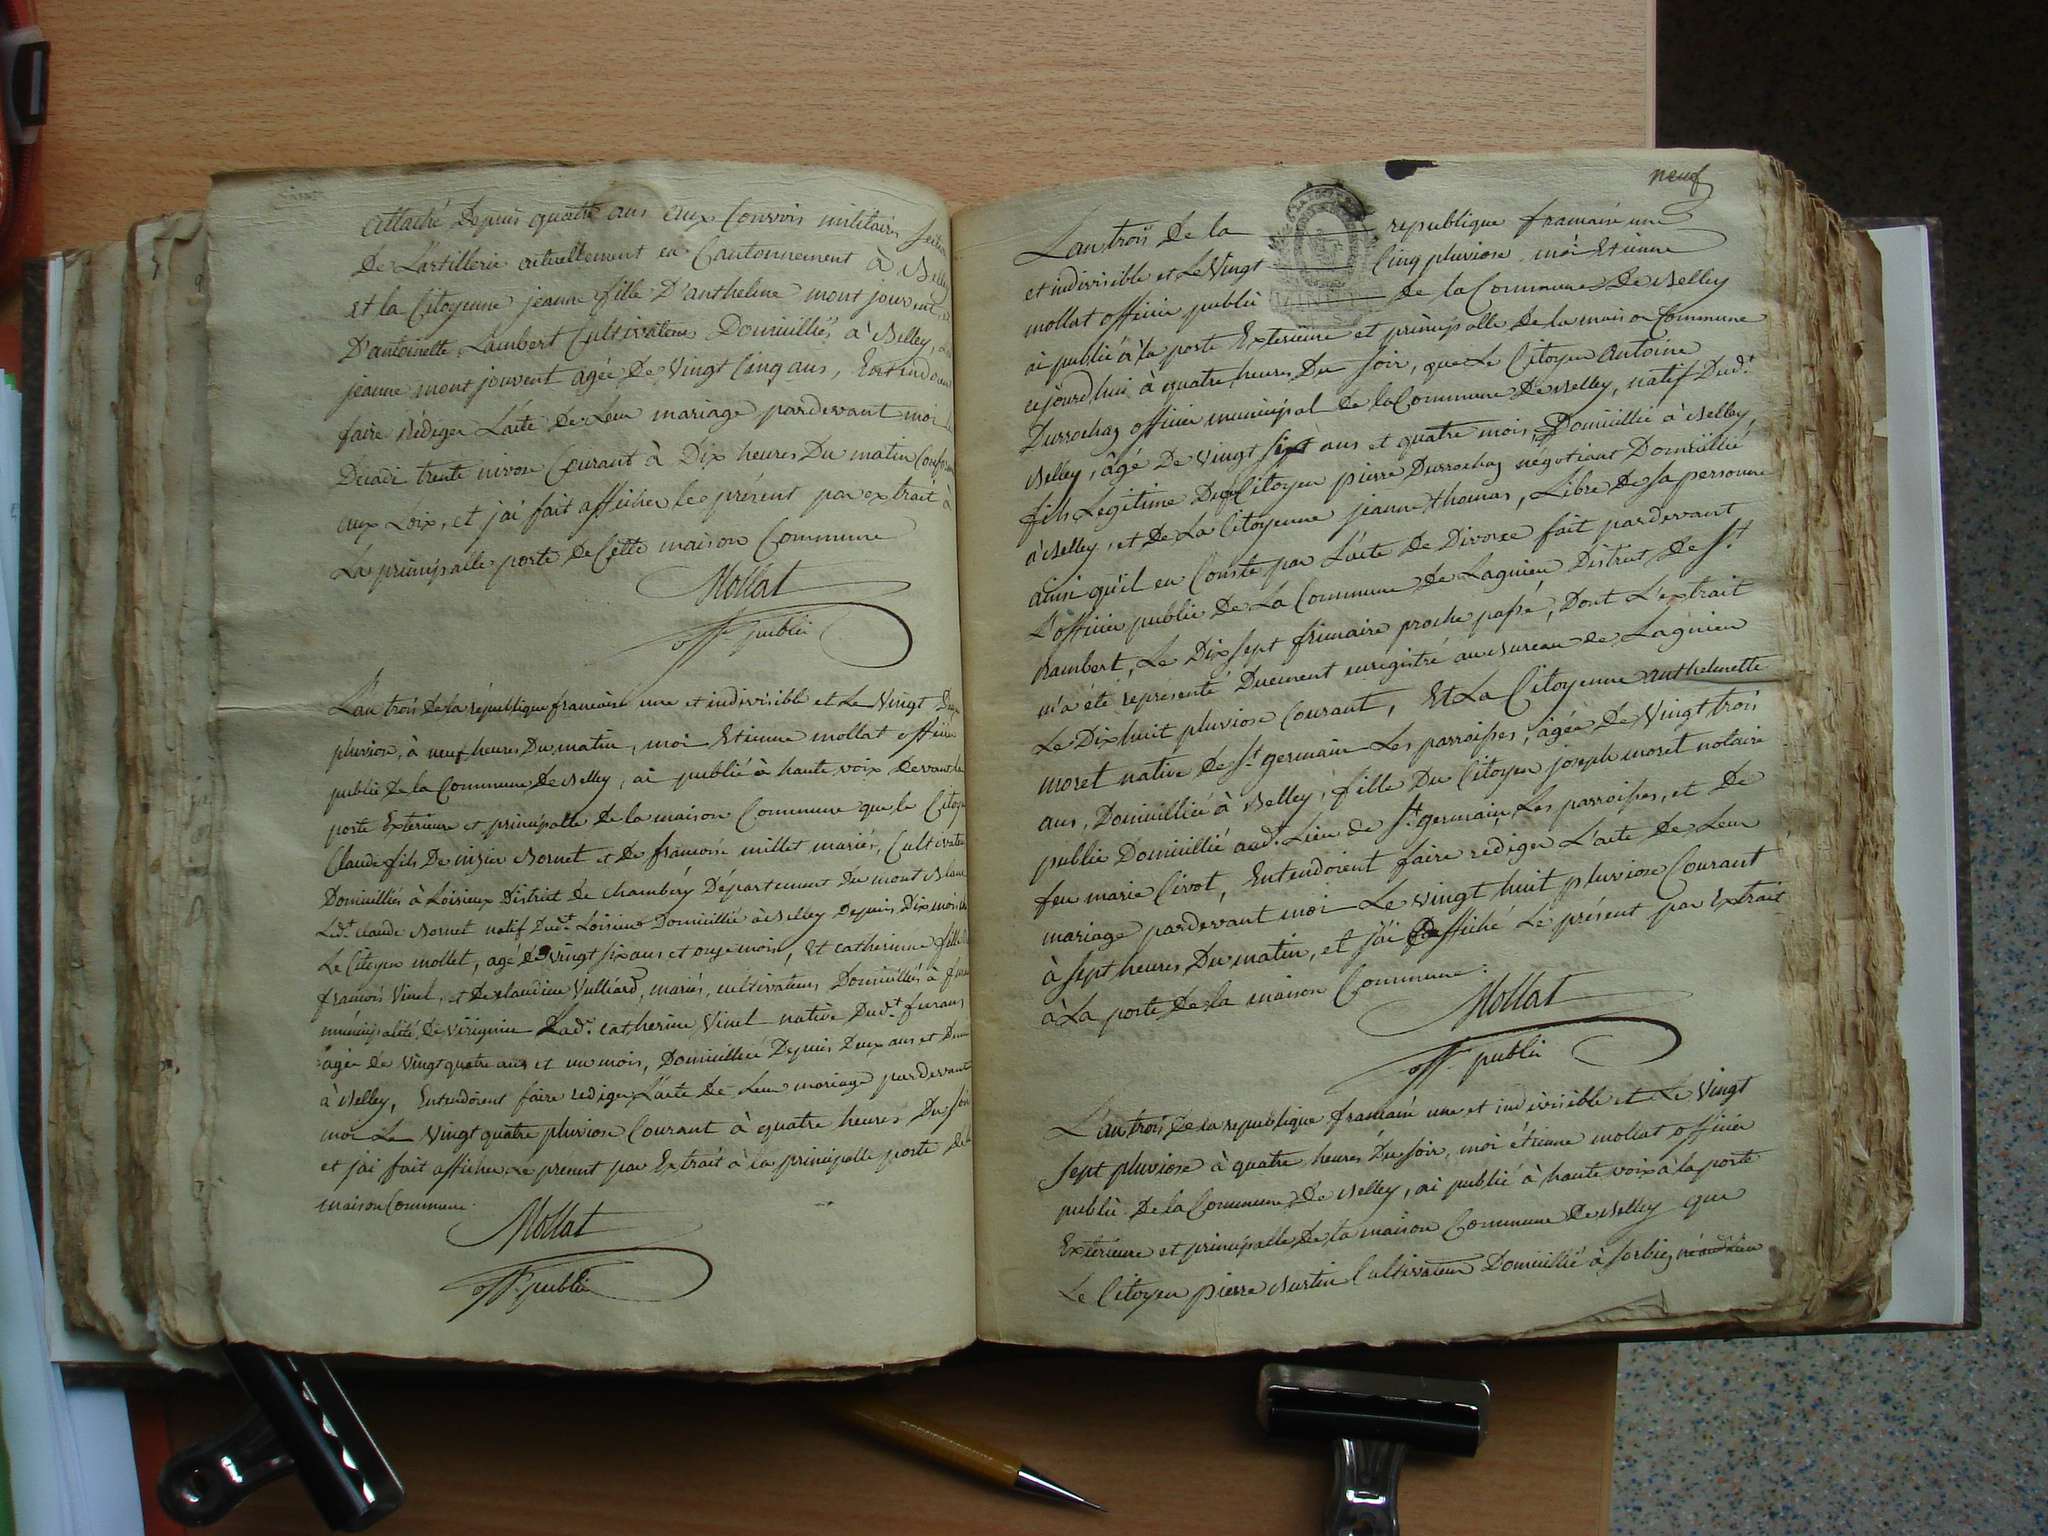 attaché Depuis quatre ans aux Convois militaires
De L'artillerie actuellement en Cantonnement à Belley
Et la Citoyenne jeanne fille D'anthelme mont jouvent, et
D'antoinette Lambert Cultivateurs Domicilliés à Belley,
jeanne mont jouvent agée De Vingt Cinq ans, Entendoient
faire Rédiger L'acte De Leur mariage pardevant moi le
Decadi trente nivose Courant à Dix heures Du matin
aux Loix, et j'ai fait afficher le présent par extrait à
La principalle porte De Cette maison Commune
Mollat
off. public
L'an trois De la république francaise une et indivisible et Le Vingt Deux
pluviose, à neuf heures Du matin, moi Etienne mollat officier
public De la Commune De Belley, ai publié à haute voix Devant la
porte Exterieure et principalle De la maison Commune que le Citoyen
Claude fils De nizier Bornet et De francoise millet mariés, Cultivateurs
Domicilliés à Loisieux District de Chambéry Département Du mont Blanc
Led.t Claude Bornet natif Dud.t Loisieux Domicillié à Belley Depuis Dix mois
Le Citoyen mollet, agé de Vingt six ans et onze mois, Et catherinne fille de
francois Vinel, et De claudine Vulliard, mariés, cultivateurs Domicilliés à furans
municipalité De Virignin Lad.e catherine Vinel native Dud.t furans
agée de Vingt quatre ans et un mois, Domicilliée Depuis Deux ans et Demi
à Belley, Entendoient faire rediger L'acte De Leur mariage pardevant
moi Le Vingt quatre pluviose Courant à quatre heures Du soir
et j'ai fait afficher Le present par Extrait à la principalle porte De la
maison Commune.
Mollat
off. public
neuf
L'an trois De la republique francaise une
et indivisible et Le Vingt Cinq pluviose moi Etienne
mollat officier public de la Commune De Belley
ai publié à la porte Exterieure et principalle De la maison Commune
cejourd'hui à quatre heures Du soir, que Le Citoyen Antoine
Durrochaz officier municipal de la Commune De Belley, natif Dud.t
Belley, âgé De Vingt sept ans et quatre mois, Domicillié à Belley,
fils Legitime Du Citoyen pierre Durrochaz négotiant Domicillié
à Belley, et De La Citoyenne jeanne thomas, Libre De sa personne
ainsi qu'il en Conste par L'acte De Divorce fait pardevant
L'officier public De La Commune De Lagnieu District de St
Rambert, Le Dix sept frimaire proche passé, Dont L'extrait
m'a été représenté Duement enregistré au Bureau de Lagnieu
Le Dix huit pluviose Courant, Et La Citoyenne anthelmette
moret native De St germain Les parroisses, agée De Vingt trois
ans, Domicilliée à Belley, fille Du Citoyen joseph moret notaire
public Domicillié aud.t Lieu de St germain Les parroisses, et De
feu marie Civot, Entendoient faire rediger L'acte De Leur
mariage pardevant moi Le Vingt huit pluviose Courant
à sept heures Du matin, et j'ai affiché Le présent par Extrait
à La porte De la maison Commune.
Mollat
off. public
L'an trois De la republique francaise une et indivisible et Le Vingt
sept pluviose à quatre heures Du soir, moi étienne mollat officier
public De la Commune De Belley, ai publié à haute voix à la porte
Exterieure et principalle De la maison Commune De Belley que
Le Citoyen pierre Burtin Cultivateur Domicillié à sorbiez né aud. lieu